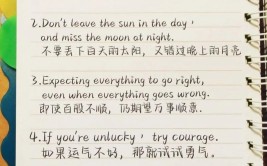 2.Don't leave the sun in the day,
and miss the moon at night.
不要丢下白天的太阳，又错过晚上的月亮
3.Expecting everything to go right,
even when everything goes wrong.
即使百般不顺，仍期望万事顺意。
4.If you're unlucky, try courage.
如果运气不好，那就试试勇气。